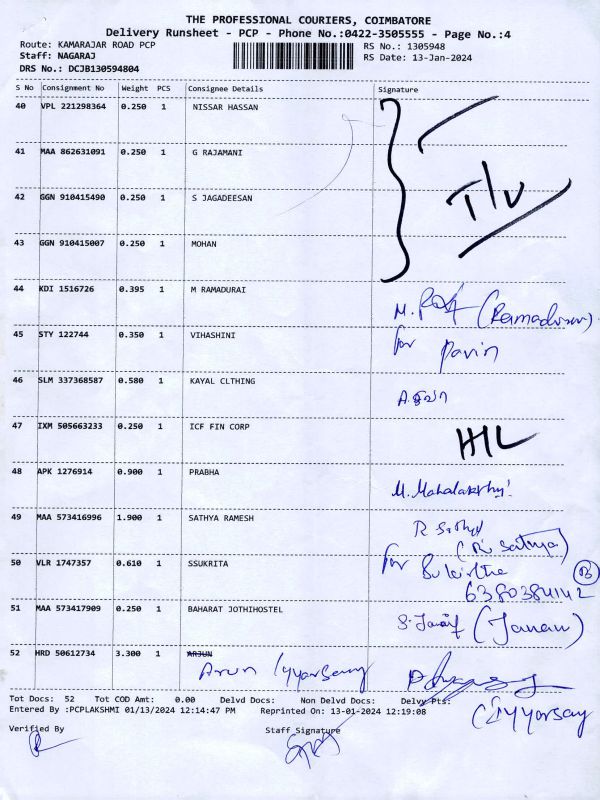 THE PROFESSIONAL COURIERS, COIMBATORE
Delivery Runsheet - PCP - Phone No.:0422-3505555 - Page No.:4
Route: KAMARAJAR ROAD PCP RS No.: 1305948
Staff: NAGARAJ RS Date: 13-Jan-2024
DRS No.: DCJB130594804
S No Consignment No Weight PCS Consignee Details Signature
40 VPL 221298364 0.250 1 NISSAR HASSAN
41 MAA 862631091 0.250 1 G RAJAMANI
42 GGN 910415490 0.250 1 S JAGADEESAN
43 GGN 910415007 0.250 1 MOHAN
44 KDI 1516726 0.395 1 M RAMADURAI
45 STY 122744 0.350 1 VIHASHINI for Pavin
46 SLM 337368587 0.580 1 KAYAL CLTHING
47 IXM 505663233 0.250 1 ICF FIN CORP
48 APK 1276914 0.900 1 PRABHA
49 MAA 573416996 1.900 1 SATHYA RAMESH (R. Sathya)
50 VLR 1747357 0.610 1 SSUKRITA for 6380384142 B
51 MAA 573417909 0.250 1 BAHARAT JOTHIHOSTEL (Janani)
52 HRD 50612734 3.300 1 ARJUN
Arun Iyyarsamy
Tot Docs: 52 Tot COD Amt: 0.00 Delvd Docs: Non Delvd Docs: Delvy Pts:
Entered By :PCPLAKSHMI 01/13/2024 12:14:47 PM Reprinted On: 13-01-2024 12:19:08
Verified By Staff Signature